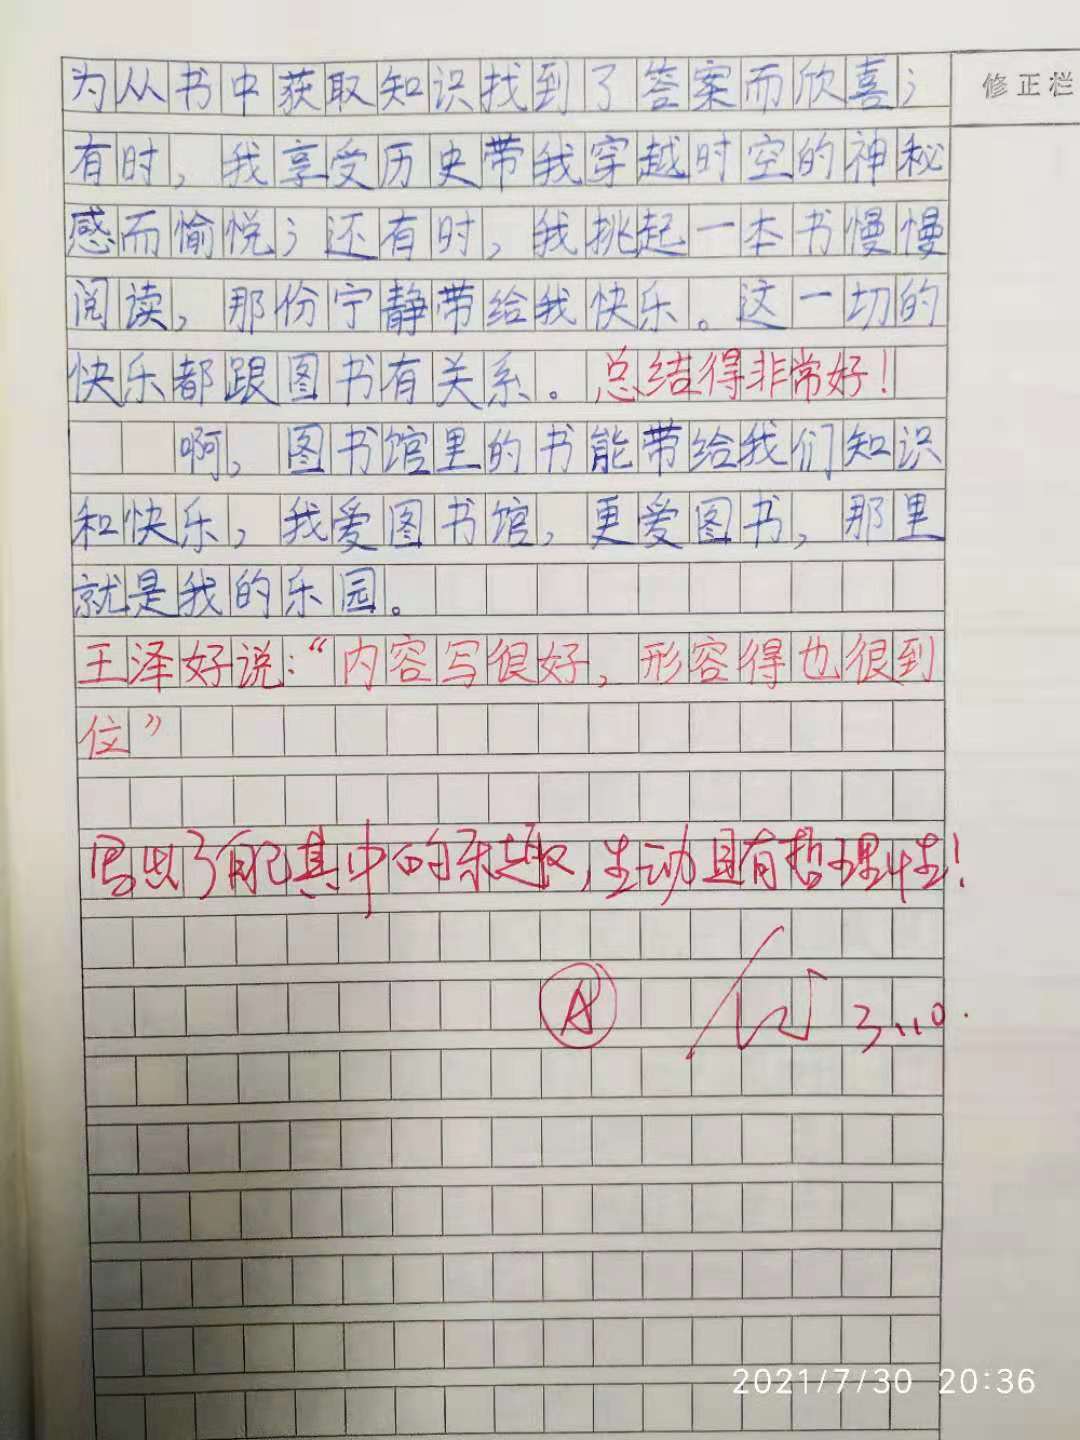 为从书中获取知识找到了答案而欣喜；
修正栏
有时，我享受历史带我穿越时空的神秘
感而愉悦；还有时，我挑起一本书慢慢
阅读，那份宁静带给我快乐。这一切的
快乐都跟图书有关系。总结得非常好！
啊，图书馆里的书能带给我们知识
和快乐，我爱图书馆，更爱图书，那里
就是我的乐园。
王泽好说：“内容写很好，形容得也很到
位”
写出了自己其中的乐趣，生动且有哲理性！
A
3.10.
2021/7/30 20:36